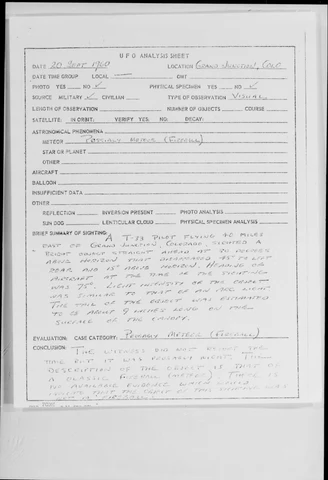 UFO ANALYSIS SHEET
DATE 20 Sept. 1960 LOCATION GRAND JUNCTION, COLO.
DATE TIME GROUP LOCAL GMT
PHOTO YES NO ✓ PHYSICAL SPECIMEN YES NO ✓
SOURCE MILITARY ✓ CIVILIAN TYPE OF OBSERVATION VISUAL
LENGTH OF OBSERVATION NUMBER OF OBJECTS COURSE
SATELLITE: IN ORBIT: VERIFY YES: NO: DECAY:
ASTRONOMICAL PHENOMENA
METEOR POSSIBLY METEOR (FIREBALL)
STAR OR PLANET
OTHER
AIRCRAFT
BALLOON
INSUFFICIENT DATA
OTHER
REFLECTION INVERSION PRESENT PHOTO ANALYSIS
SUN DOG LENTICULAR CLOUD PHYSICAL SPECIMEN ANALYSIS
BRIEF SUMMARY OF SIGHTING: A T-33 PILOT FLYING 40 MILES
EAST OF GRAND JUNCTION, COLORADO, SIGHTED A
BRIGHT OBJECT STRAIGHT AHEAD AT 30 DEGREES
ABOVE HORIZON THAT DISAPPEARED 45° TO LEFT
REAR AND 15° ABOVE HORIZON. HEADING OF
AIRCRAFT AT THE TIME OF THE SIGHTING
WAS 75°. LIGHT INTENSITY OF THE OBJECT
WAS SIMILAR TO THAT OF AN ARC LIGHT
THE TAIL OF THE OBJECT WAS ESTIMATED
TO BE ABOUT 9 INCHES LONG ON THE
SURFACE OF THE CANOPY.
EVALUATION: CASE CATEGORY: PROBABLY METEOR (FIREBALL)
CONCLUSION: THE WITNESS DID NOT RECORD THE
TIME BUT IT WAS PROBABLY NIGHT. THE
DESCRIPTION OF THE OBJECT IS THAT OF
A CLASSIC FIREBALL (METEOR). THERE IS
NO AVAILABLE EVIDENCE WHICH WOULD
THAT THE OBJECT OF THIS SIGHTING WAS
NOT A FIREBALL.